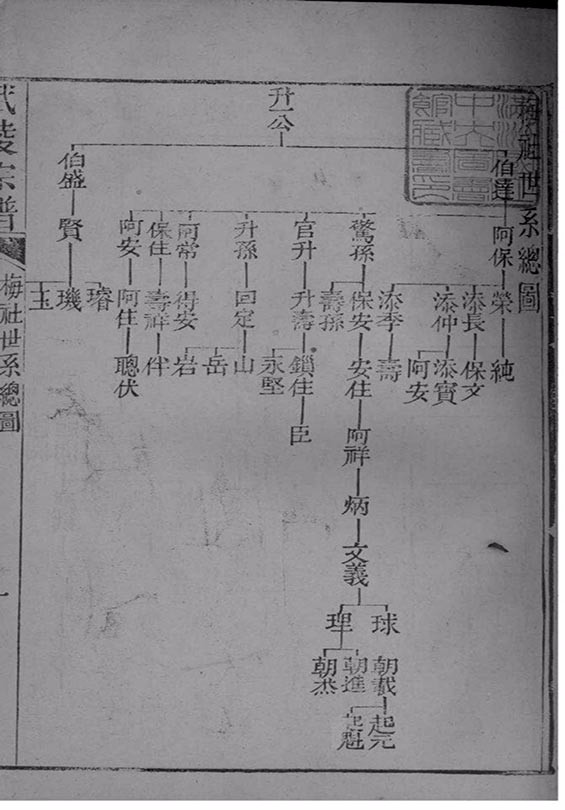 梅社世系總圖
升一公
伯達
伯盛
阿保
驚孫
官升
升孫
阿常
保住
阿安
賢
榮
添長
添仲
添季
保安
壽孫
升壽
回定
得安
壽祥
阿住
璿
璣
玉
純
保文
添寶
阿安
壽
安住
鎖住
永堅
山
岳
岩
伴
聰伏
阿祥
臣
炳
文義
球
理
朝載
朝進
朝杰
起元
起魁
武陵宗譜
梅社世系總圖
一